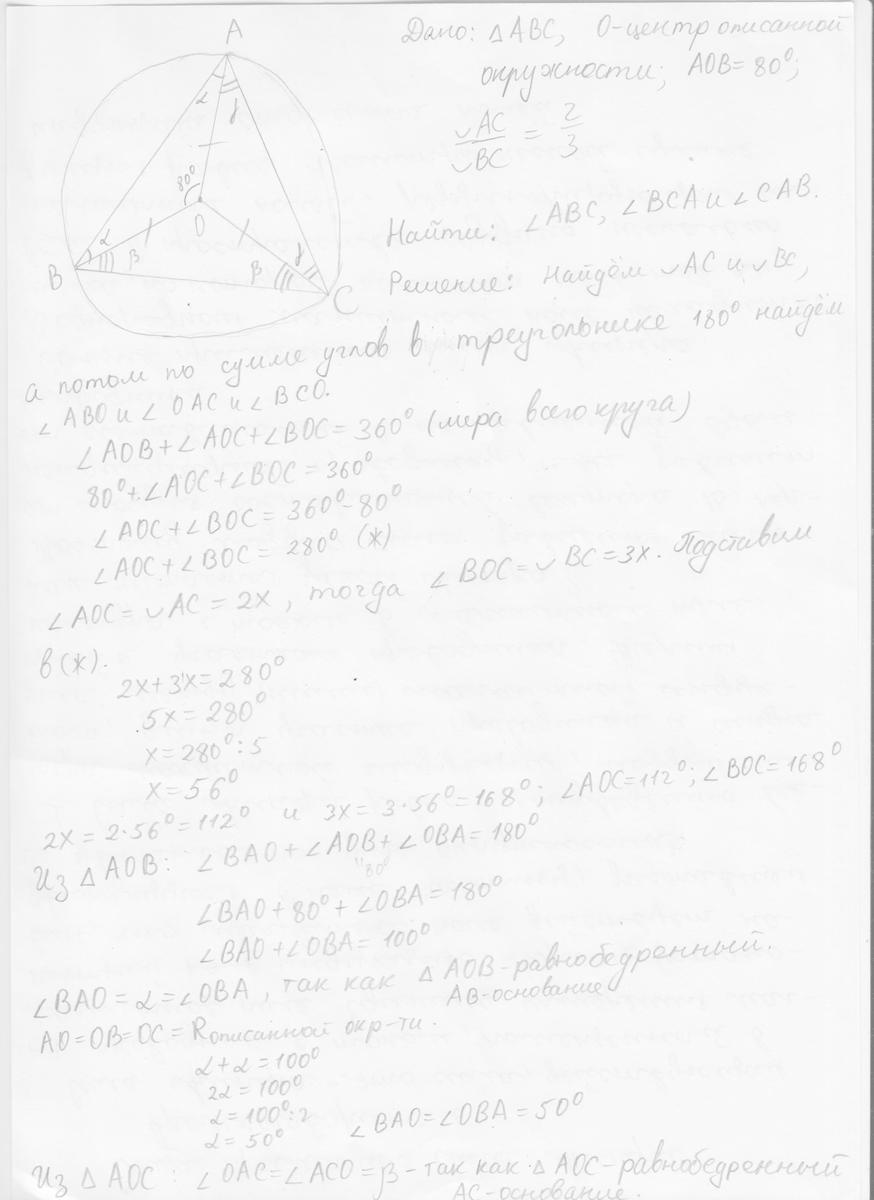 A
Дано: △ABC, O-центр описанной
окружности; AOB = 80⁰;
◡AC / ◡BC = 2/3
α γ
80⁰
O
α β β γ
B C
Найти: ∠ABC, ∠BCA и ∠CAB.
Решение: Найдём ◡AC и ◡BC,
а потом по сумме углов в треугольнике 180⁰ найдём
∠ABO и ∠OAC и ∠BCO.
∠AOB + ∠AOC + ∠BOC = 360⁰ (мера всего круга)
80⁰ + ∠AOC + ∠BOC = 360⁰
∠AOC + ∠BOC = 360⁰ - 80⁰
∠AOC + ∠BOC = 280⁰ (ж)
∠AOC = ◡AC = 2x, тогда ∠BOC = ◡BC = 3x. Подставим
в (ж).
2x + 3x = 280⁰
5x = 280⁰
x = 280⁰ : 5
x = 56⁰
2x = 2·56⁰ = 112⁰ и 3x = 3·56⁰ = 168⁰; ∠AOC = 112⁰; ∠BOC = 168⁰
Из △AOB: ∠BAO + ∠AOB + ∠OBA = 180⁰
" 80⁰
∠BAO + 80⁰ + ∠OBA = 180⁰
∠BAO + ∠OBA = 100⁰
∠BAO = α = ∠OBA, так как △AOB - равнобедренный.
AB-основание
AO = OB = OC = R описанной окр-ти.
α + α = 100⁰
2α = 100⁰
α = 100⁰ : 2
α = 50⁰ ∠BAO = ∠OBA = 50⁰
Из △AOC: ∠OAC = ∠ACO = β - так как △AOC - равнобедренный
AC-основание.